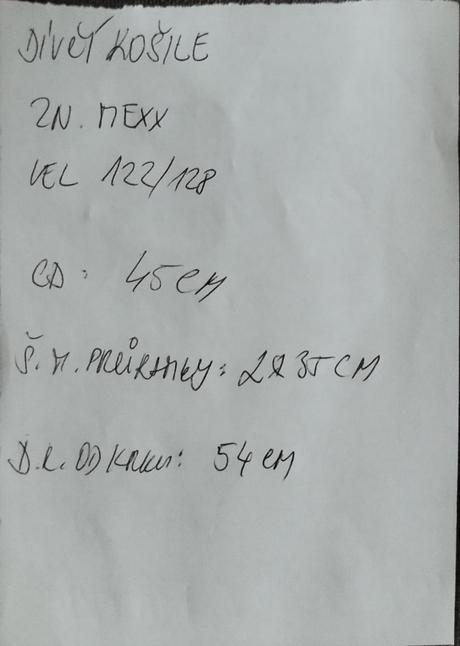 DÍVČÍ KOŠILE
ZN. MEXX
VEL 122/128
CD: 45 CM
Š.M. PRŮRAMKY: 2X 35 CM
D.R. OD KRKU: 54 CM